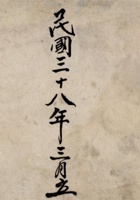 民國三十八年三月立